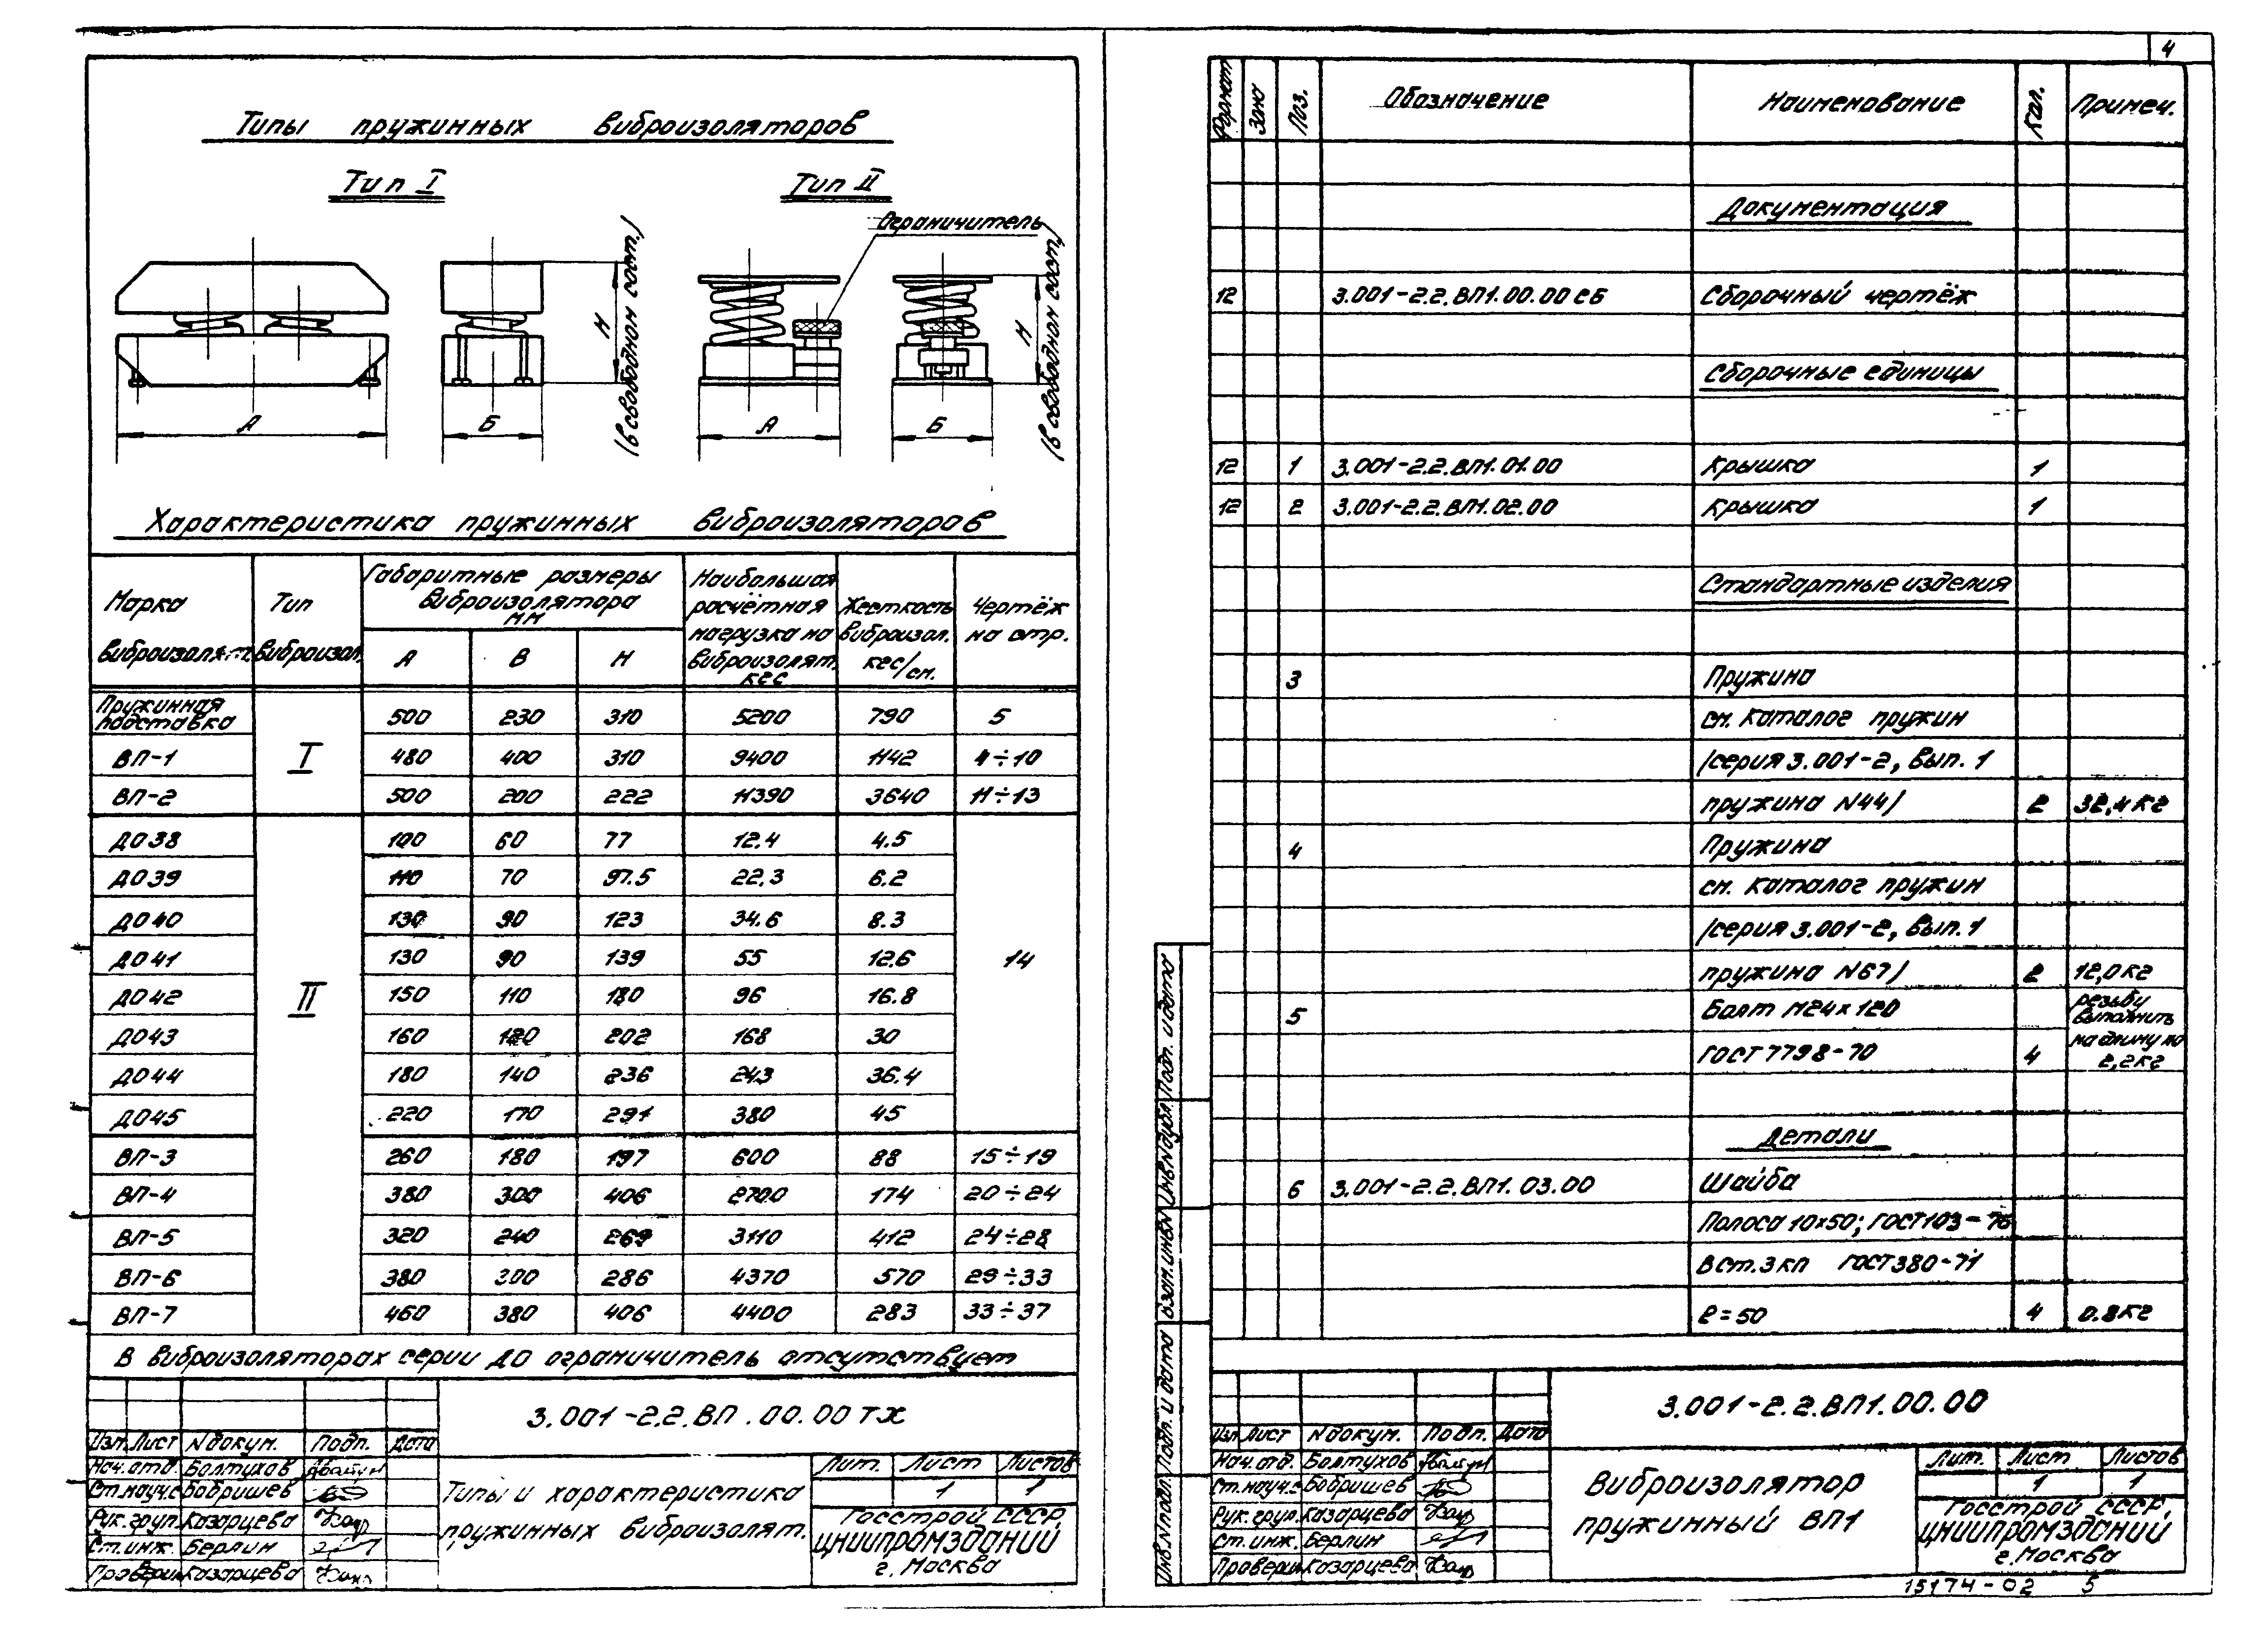 4
Типы пружинных виброизоляторов
Тип I Тип II
Ограничитель
H (в свободном сост.)
H (в свободном сост.)
А Б А Б
Характеристика пружинных виброизоляторов
Марка виброизолят. Тип виброизол. Габаритные размеры виброизолятора мм Наибольшая расчётная нагрузка на виброизолят. кгс Жесткость виброизол. кгс/см. Чертёж на стр.
А В Н
Пружинная подставка I 500 230 310 5200 790 5
ВП-1 480 400 310 9400 1142 4÷10
ВП-2 500 200 222 11390 3640 11÷13
ДО38 II 100 60 77 12.4 4.5 14
ДО39 110 70 97.5 22.3 6.2
ДО40 130 90 123 34.6 8.3
ДО41 130 90 139 55 12.6
ДО42 150 110 180 96 16.8
ДО43 160 120 202 168 30
ДО44 180 140 236 243 36.4
ДО45 220 170 291 380 45
ВП-3 260 180 197 600 88 15÷19
ВП-4 380 300 406 2700 174 20÷24
ВП-5 320 240 269 3110 412 24÷28
ВП-6 380 300 286 4370 570 29÷33
ВП-7 460 380 406 4400 283 33÷37
В виброизоляторах серии ДО ограничитель отсутствует
3.001-2.2.ВП.00.00 ТХ
Изм. Лист N докум. Подп. Дата
Нач.отд. Болтухов
Ст.науч.с Бобришев
Рук.груп. Казарцева
Ст.инж. Берлин
Проверил Казарцева
Типы и характеристика
пружинных виброизолят.
Лит. Лист Листов
1 1
Госстрой СССР,
ЦНИИПРОМЗДАНИЙ
г. Москва
Формат Зона Поз. Обозначение Наименование Кол. Примеч.
Документация
12 3.001-2.2.ВП1.00.00 СБ Сборочный чертёж
Сборочные единицы
12 1 3.001-2.2.ВП1.01.00 Крышка 1
12 2 3.001-2.2.ВП1.02.00 Крышка 1
Стандартные изделия
3 Пружина
см. каталог пружин
/серия 3.001-2, вып. 1
пружина N44/ 2 32,4 кг
4 Пружина
см. каталог пружин
/серия 3.001-2, вып. 1
пружина N67/ 2 12,0 кг
5 Болт М24х120 резьбу выполнить
ГОСТ 7798-70 4 на длину по 2,2кг
Детали
6 3.001-2.2.ВП1.03.00 Шайба
Полоса 10х50; ГОСТ 103-76
В ст.3 кп ГОСТ 380-71
ℓ=50 4 0.8кг
Подп. и дата
Инв.N дубл.
Взам.инв.N
Подп. и дата
Инв.N подл.
3.001-2.2.ВП1.00.00
Изм Лист N докум. Подп. Дата
Нач.отд. Болтухов
Ст.науч.с Бобришев
Рук.груп. Казарцева
Ст.инж. Берлин
Проверил Казарцева
Виброизолятор
пружинный ВП1
Лит. Лист Листов
1 1
Госстрой СССР,
ЦНИИПРОМЗДАНИЙ
г. Москва
15174-02 5